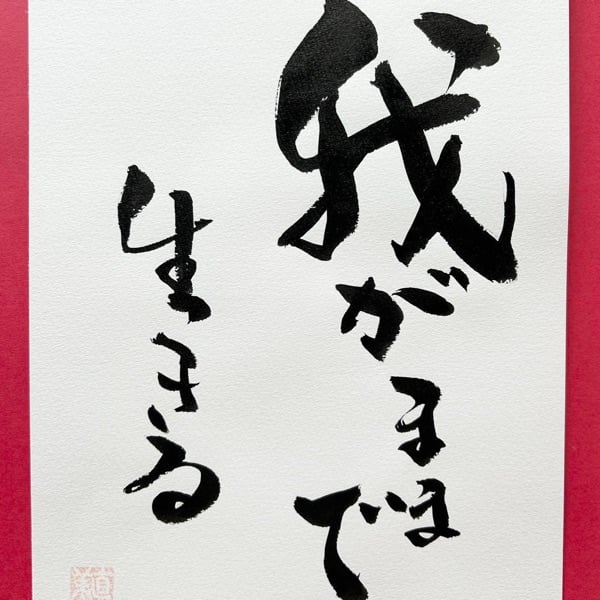 我がままで
生きる